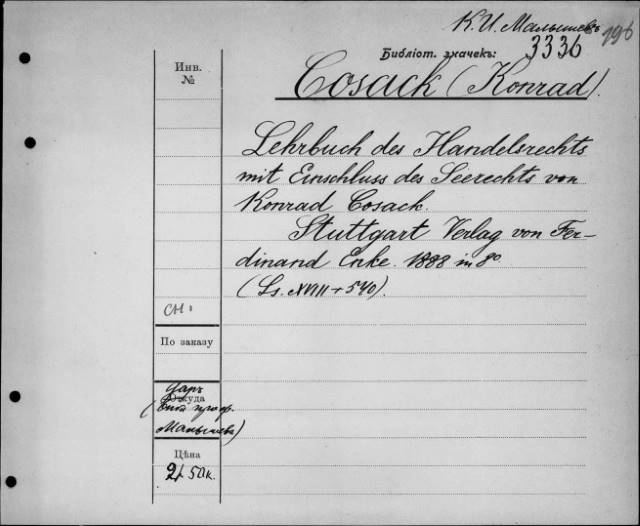 К. И. Малышевъ
196
Библіот. значекъ: 3336
Cosack (Konrad).
Инв.
№
Lehrbuch des Handelsrechts
mit Einschluss des Seerechts von
Konrad Cosack.
Stuttgart Verlag von Fer-
dinand Enke. 1888 in 8º.
(Ss. XVIII + 540).
СН:
По заказу
Даръ
Откуда
проф.
Малышева)
Цѣна
2р. 50к.